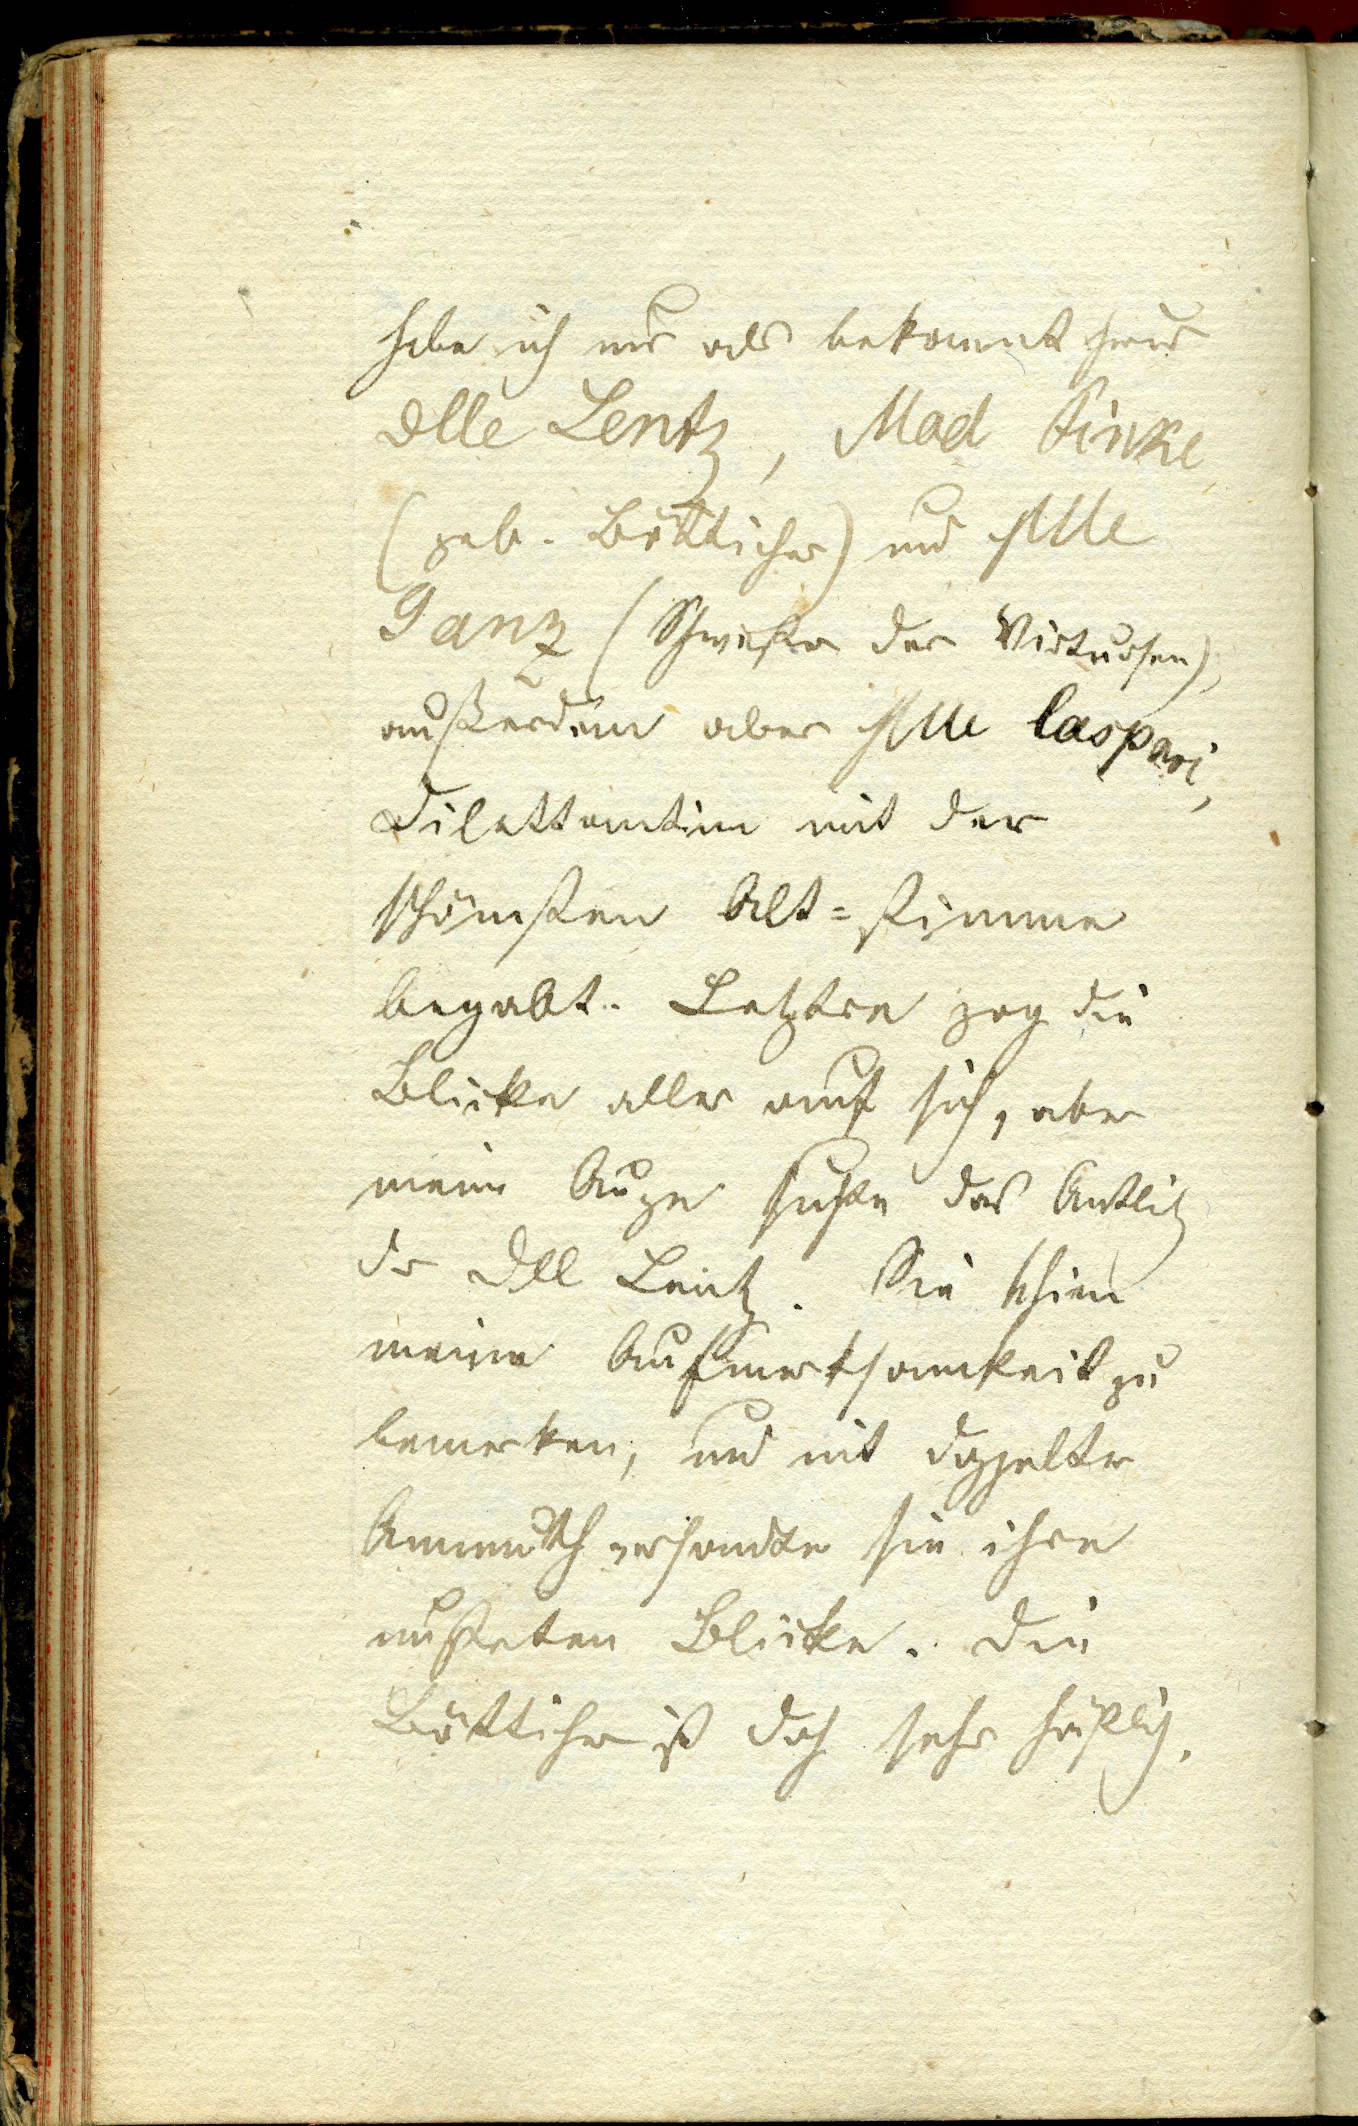 habe ich nur als bekannt heraus
Dlle Lentz, Mad Finke
(geb. Bötticher) und Mlle
Ganz (Schwester der Virtuosen),
außerdem aber Mlle Caspari,
Dilettantin mit der
schönsten Alt=stimme
begabt. Letztre zog die
Blicke aller auf sich, aber
mein Auge suchte das Antlitz
der Dlle Lentz. Sie schien
meine Aufmerksamkeit zu
bemerken, und mit doppelter
Anmuth versandte sie ihre
Blicke. Die
Bötticher ist doch sehr häßlich.